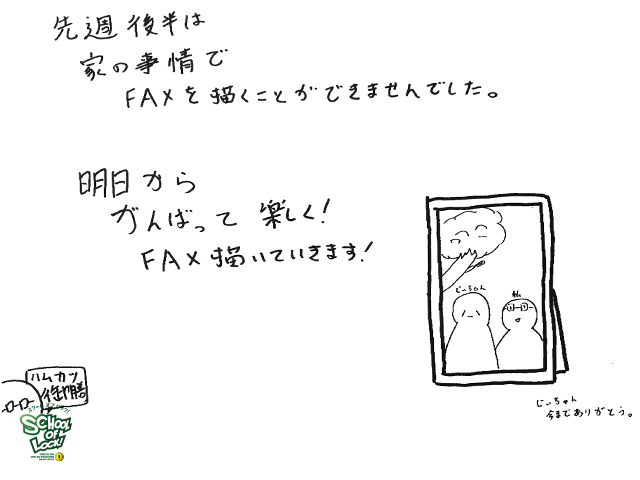 先週後半は
家の事情で
FAXを描くことができませんでした。
明日から
がんばって楽しく!
FAX描いていきます!
じぃちゃん
私
じぃちゃん
今までありがとう。
ハムカツ
SCHOOL
OF
LOCK!